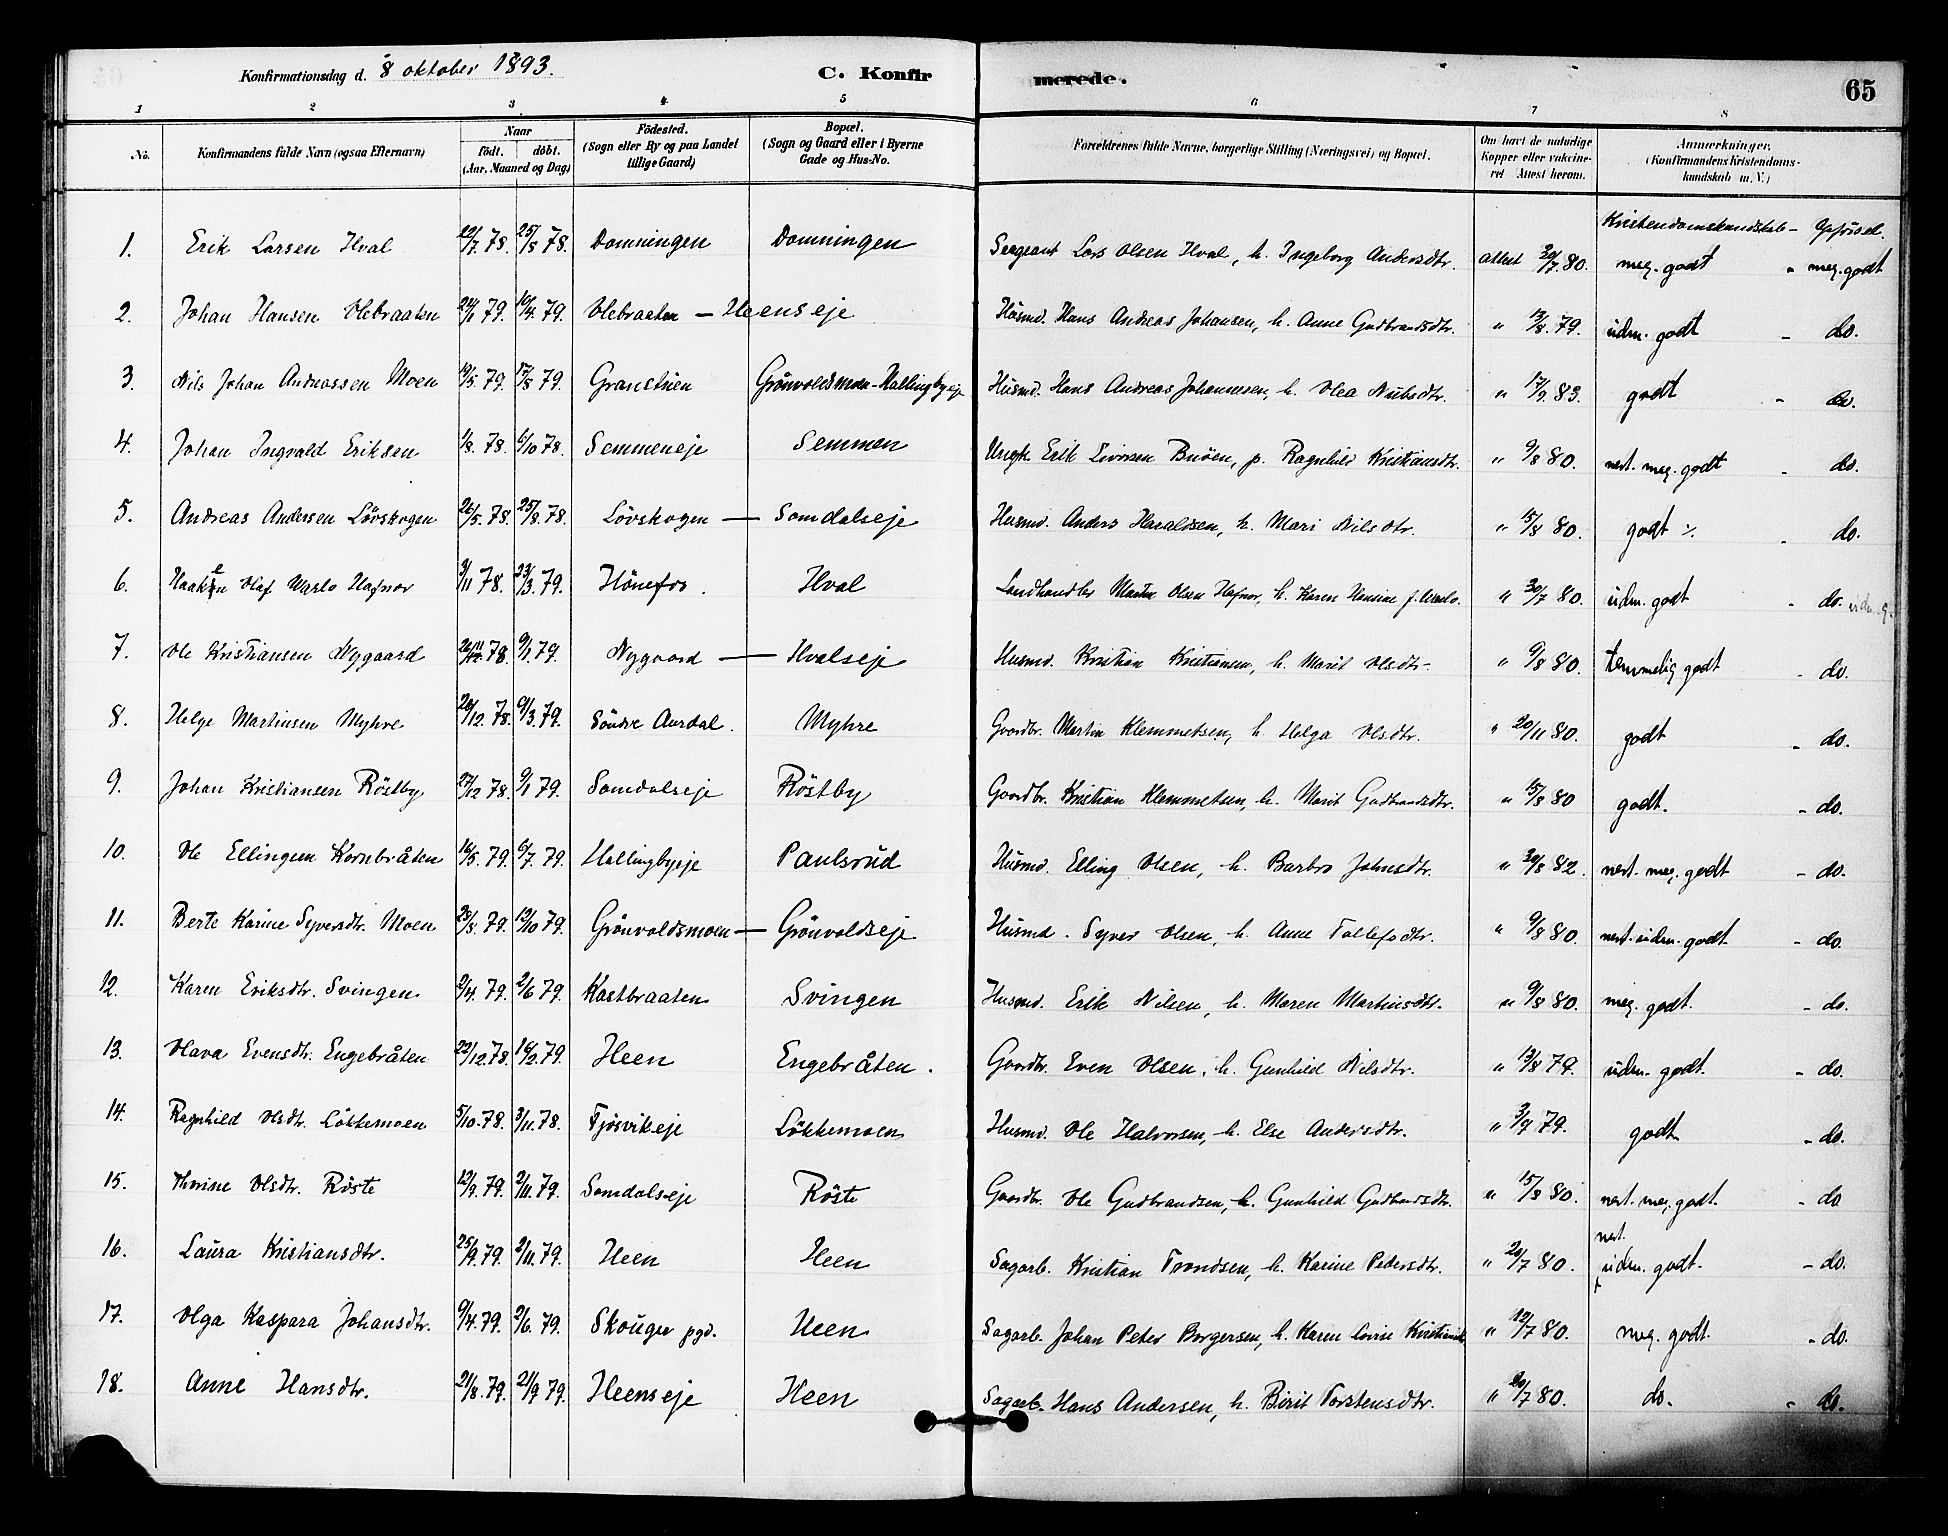 Konfirmationsdag d. 8 oktober 1893. C. Konfirmerede. 65
1 2 3 4 5 6 7 8
No. Konfirmandens fulde Navn (ogsaa Efternavn) Naar födt. döbt. (Aar, Maaned og Dag) Födested. (Sogn eller By og paa Landet tillige Gaard) Bopæl. (Sogn og Gaard eller i Byerne Gade og Hus-No. Forældrenes fulde Navne, borgerlige Stilling (Næringsvei) og Bopæl. Om havt de naturlige Kopper eller vakcineret Attest herom. Anmerkninger. (Konfirmandens Kristendomskundskab m. V.)
Kristendomskundskab - Opførsel.
1. Erik Larsen Hval 22/7 78. 25/8 78. Domningen Domningen Sergeant Lars Olsen Hval, h. Ingeborg Andersdtr. attest 30/7 80. meg. godt " meg. godt
2. Johan Hansen Olebraaten 24/1 79. 10/4 79. Olebraaten — Heenseje Husmd. Hans Andreas Johansen, h. Anne Gudbrandsdtr. " 13/8 79. udm. godt - do.
3. Nils Johan Andreassen Moen 19/5 79. 17/8 79. Granstuen Grönvoldsmoen-Hallingbyeje Husmd. Hans Andreas Johannesen, h. Olea Nubsdtr. " 17/9. 83. godt - do.
4. Johan Ingvald Eriksen 1/8. 78. 6/10 78. Semmeneje Semmen Ungk. Erik Livorsen Buöen, p. Ragnhild Kristiansdtr. " 9/8 80. nest. meg. godt - do.
5. Andreas Andersen Lövskogen 26/5. 78. 25/8. 78. Lövskogen — Somdalseje Husmd. Anders Haraldsen, h. Mari Nilsdtr. " 15/8 80. godt ٪ - do.
6. Haaken Olaf Warlo Hafnor 3/11 78. 23/3. 79. Hönefos. Hval Landhandler Martin Olsen Hafnor, h. Karen Hansine f. Warlo. " 30/7 80. udm. godt - do. udm. g.
7. Ole Kristiansen Nygaard 26/11 78. 9/1. 79. Nygaard — Hvalseje Husmd. Kristian Kristiansen, h. Marit Olsdtr- " 9/8 80. temmelig godt - do.
8. Helge Martinsen Myhre 26/12. 78. 9/3. 79. Söndre Aurdal. Myhre Gaardbr. Martin Klemmetsen, h Helga Olsdtr. " 20/11 80. godt - do.
9. Johan Kristiansen Röstby 27/12 78. 9/1 79. Somdalseje Röstby Gaardbr. Kristian Klemmetsen, h. Marit Gudbrandsdtr. " 15/8 80 godt. - do.
10. Ole Ellingsen Kornbråten 16/5. 79. 6/7. 79. Hallingbyeje Paulsrud Husmd. Elling Olsen, h. Barbro Johnsdtr. " 30/8 82. nest. meg. godt - do.
11. Berte Karine Syversdtr. Moen 23/8. 79. 12/10 79. Grönvoldsmoen — Grönvoldseje Husmd. Syver Olsen, h. Anne Tollefsdtr. " 9/8 80. nest. udm. godt - do.
12. Karen Eriksdtr. Svingen 9/4. 79. 2/6 79. Kastbraaten Svingen Husmd. Erik Nilsen, h. Maren Martinsdtr. " 9/8 80. meg. godt. - do.
13. Olava Evensdtr. Engebråten 22/12. 78. 16/2. 79. Heen Engebråten. Gaardbr. Even Olsen, h. Gunhild Nilsdtr. " 13/8 79. udm. godt. - do.
14. Ragnhild Olsdtr. Lökkemoen 5/10. 78. 3/11. 78. Tjösvikeje Lökkemoen Husmd. Ole Halvorsen, h. Else Andersdtr. " 3/9 79. godt. - do.
15. Thorine Olsdtr. Röste 12/9. 79. 2/11. 79. Somdalseje Röste Gaardbr. Ole Gudbrandsen, h. Gunhild Gudbrandsdtr. " 15/8 80. nest. meg. godt. - do
16. Laura Kristiansdtr. 25/9. 79. 2/11. 79. Heen Heen Sagarb. Kristian Trondsen, h. Karine Pedersdtr. " 20/7 80. nest. udm. godt. - do.
17. Olga Kaspara Johansdtr. 9/4. 79. 2/6. 79. Skouger pgd. Heen Sagarb. Johan Peter Borgersen, h. Karen Lovise Kristiansdtr " 12/7 80. meg. godt. - do.
18. Anne Hansdtr. 21/8. 79. 21/9 79. Heenseje Heen Sagarb. Hans Andersen, h. Birit Torstensdtr. " 20/7 80. do. - do.